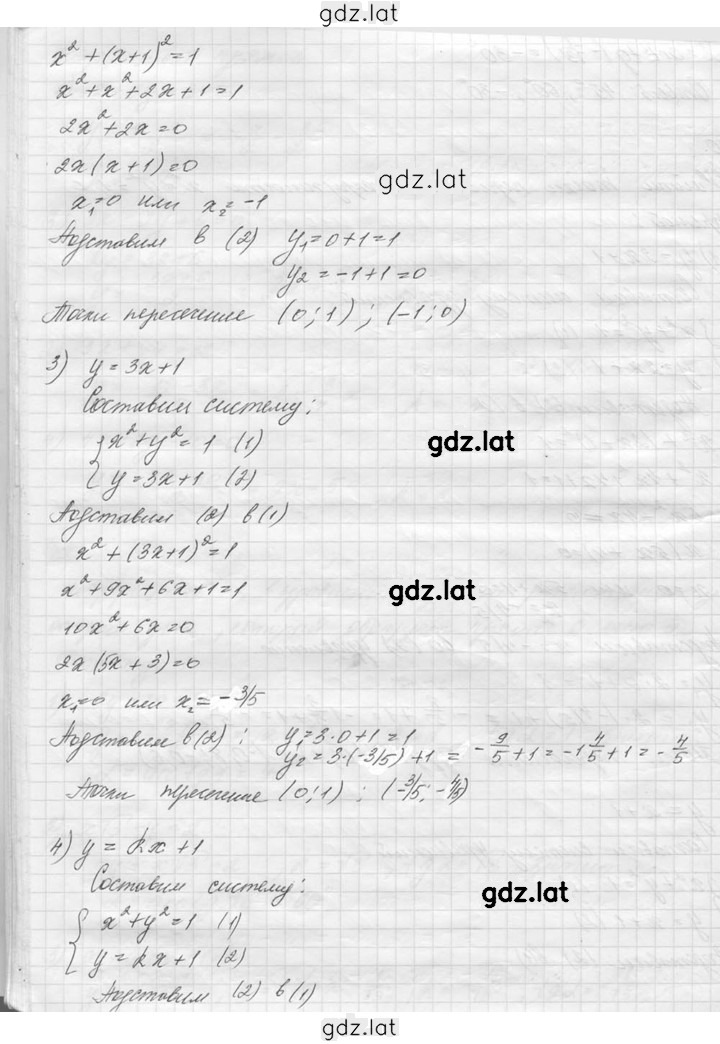 gdz.lat
x² + (x+1)² = 1
x² + x² + 2x + 1 = 1
2x² + 2x = 0
2x(x+1) = 0
gdz.lat
x₁ = 0 или x₂ = -1
Подставим в (2) y₁ = 0+1 = 1
y₂ = -1+1 = 0
Точки пересечение (0;1) ; (-1;0)
3) y = 3x+1
Составим систему:
{ x² + y² = 1 (1)
gdz.lat
y = 3x+1 (2)
Подставим (2) в (1)
x² + (3x+1)² = 1
x² + 9x² + 6x + 1 = 1
gdz.lat
10x² + 6x = 0
2x(5x+3) = 0
x₁ = 0 или x₂ = -3/5
Подставим в (2) : y₁ = 3·0+1 = 1
y₂ = 3·(-3/5) +1 = -9/5 +1 = -1 4/5 +1 = -4/5
Точки пересечение (0;1) ; (-3/5; -4/5)
4) y = kx+1
Составим систему:
gdz.lat
{ x² + y² = 1 (1)
y = kx+1 (2)
Подставим (2) в (1)
gdz.lat